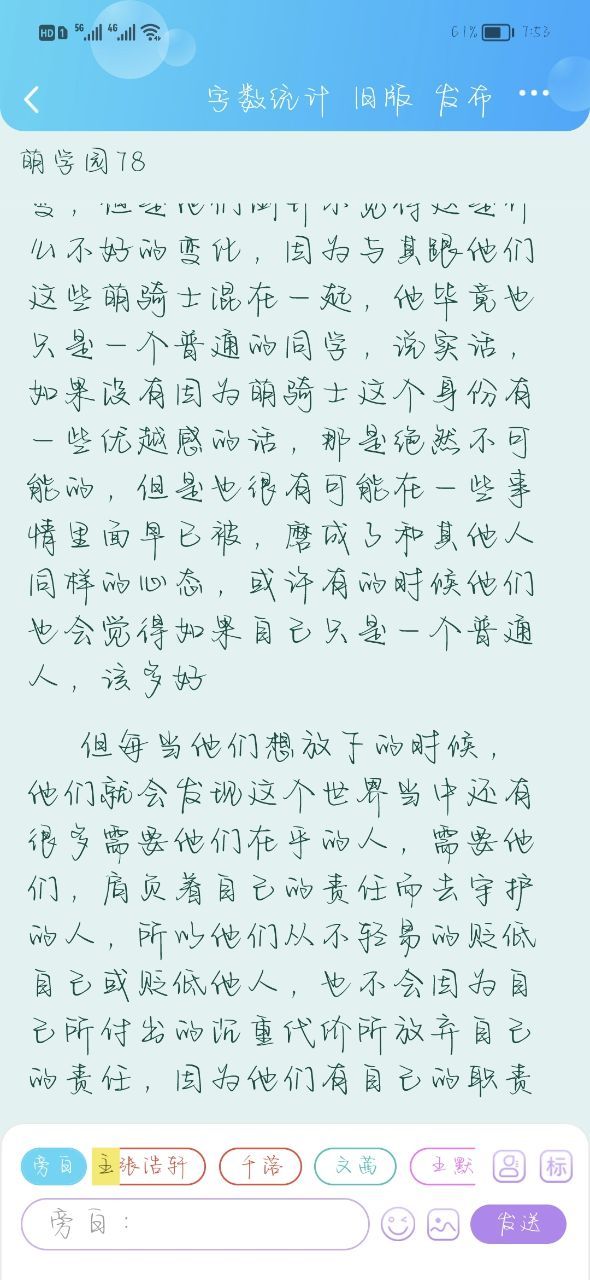 HD 1 5G 4G 61% 7:53
字数统计 旧版 发布
萌学园78
变，但是他们倒并不觉得这是什
么不好的变化，因为与其跟他们
这些萌骑士混在一起，他毕竟也
只是一个普通的同学，说实话，
如果没有因为萌骑士这个身份有
一些优越感的话，那是绝然不可
能的，但是也很有可能在一些事
情里面早已被，磨成了和其他人
同样的心态，或许有的时候他们
也会觉得如果自己只是一个普通
人，该多好
但每当他们想放下的时候，
他们就会发现这个世界当中还有
很多需要他们在乎的人，需要他
们，肩负着自己的责任而去守护
的人，所以他们从不轻易的贬低
自己或贬低他人，也不会因为自
己所付出的沉重代价所放弃自己
的责任，因为他们有自己的职责
旁白 主 张浩轩 千落 文茜 王默 标
旁白：
发送